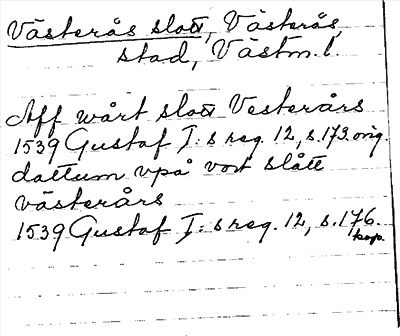 Västerås slott, Västerås
stad, Västm. l.
Aff wårt slott Vesterårs
1539 Gustaf I:s reg. 12, s. 173. orig.
dattum vpå vort slått
västerårs
1539 Gustaf I:s reg. 12, s. 176.
kop.